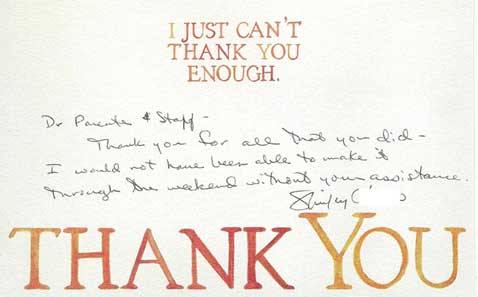 I JUST CAN'T
THANK YOU
ENOUGH.
Dr Parenter & Staff -
Thank you for all that you did -
I would not have been able to make it
through the weekend without your assistance.
Shirley
THANK YOU